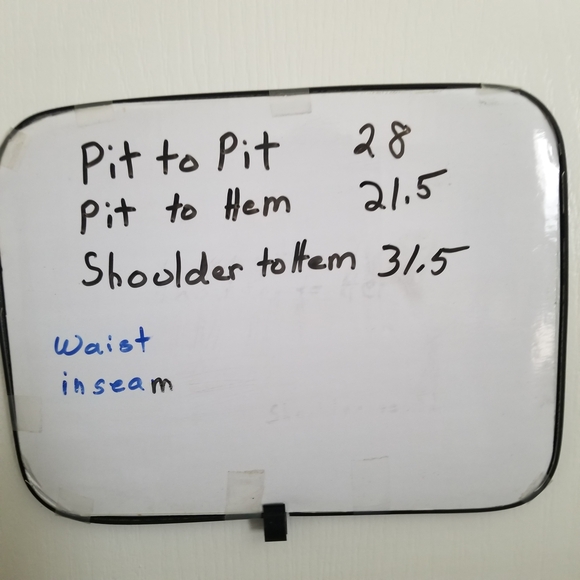 Pit to Pit 28
Pit to Hem 21.5
Shoulder to Hem 31.5
Waist
inseam